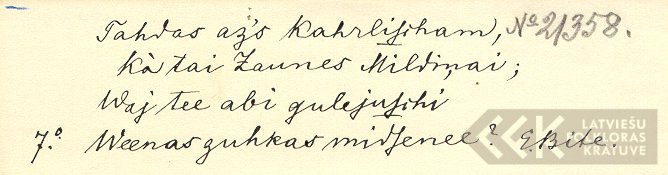 Tahdas az's Kahrlischam, No 21358.
Kà tai Zaunes Mildiņai;
Waj tee abi gulejuschi
7.º Weenas zuhkas midsenee? E. Bite.
LATVIEŠU FOLKLORAS KRĀTUVE